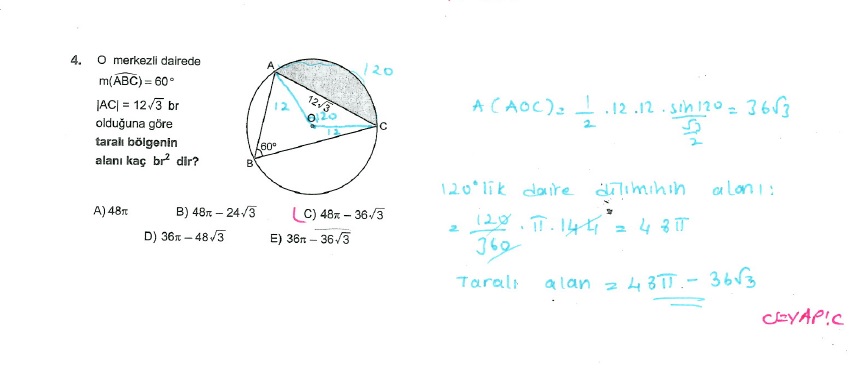 4. O merkezli dairede
m(ABC) = 60°
|AC| = 12√3 br
olduğuna göre
taralı bölgenin
alanı kaç br² dir?
A
120
12
12√3
O
120
12
C
60°
B
A) 48π B) 48π − 24√3 C) 48π − 36√3
D) 36π − 48√3 E) 36π − 36√3
A(AOC) = 1/2 . 12 . 12 . sin120 = 36√3
√3/2
120°lik daire diliminin alanı:
= 120/360 . π . 144 = 48π
Taralı alan = 48π - 36√3
CEVAP: C